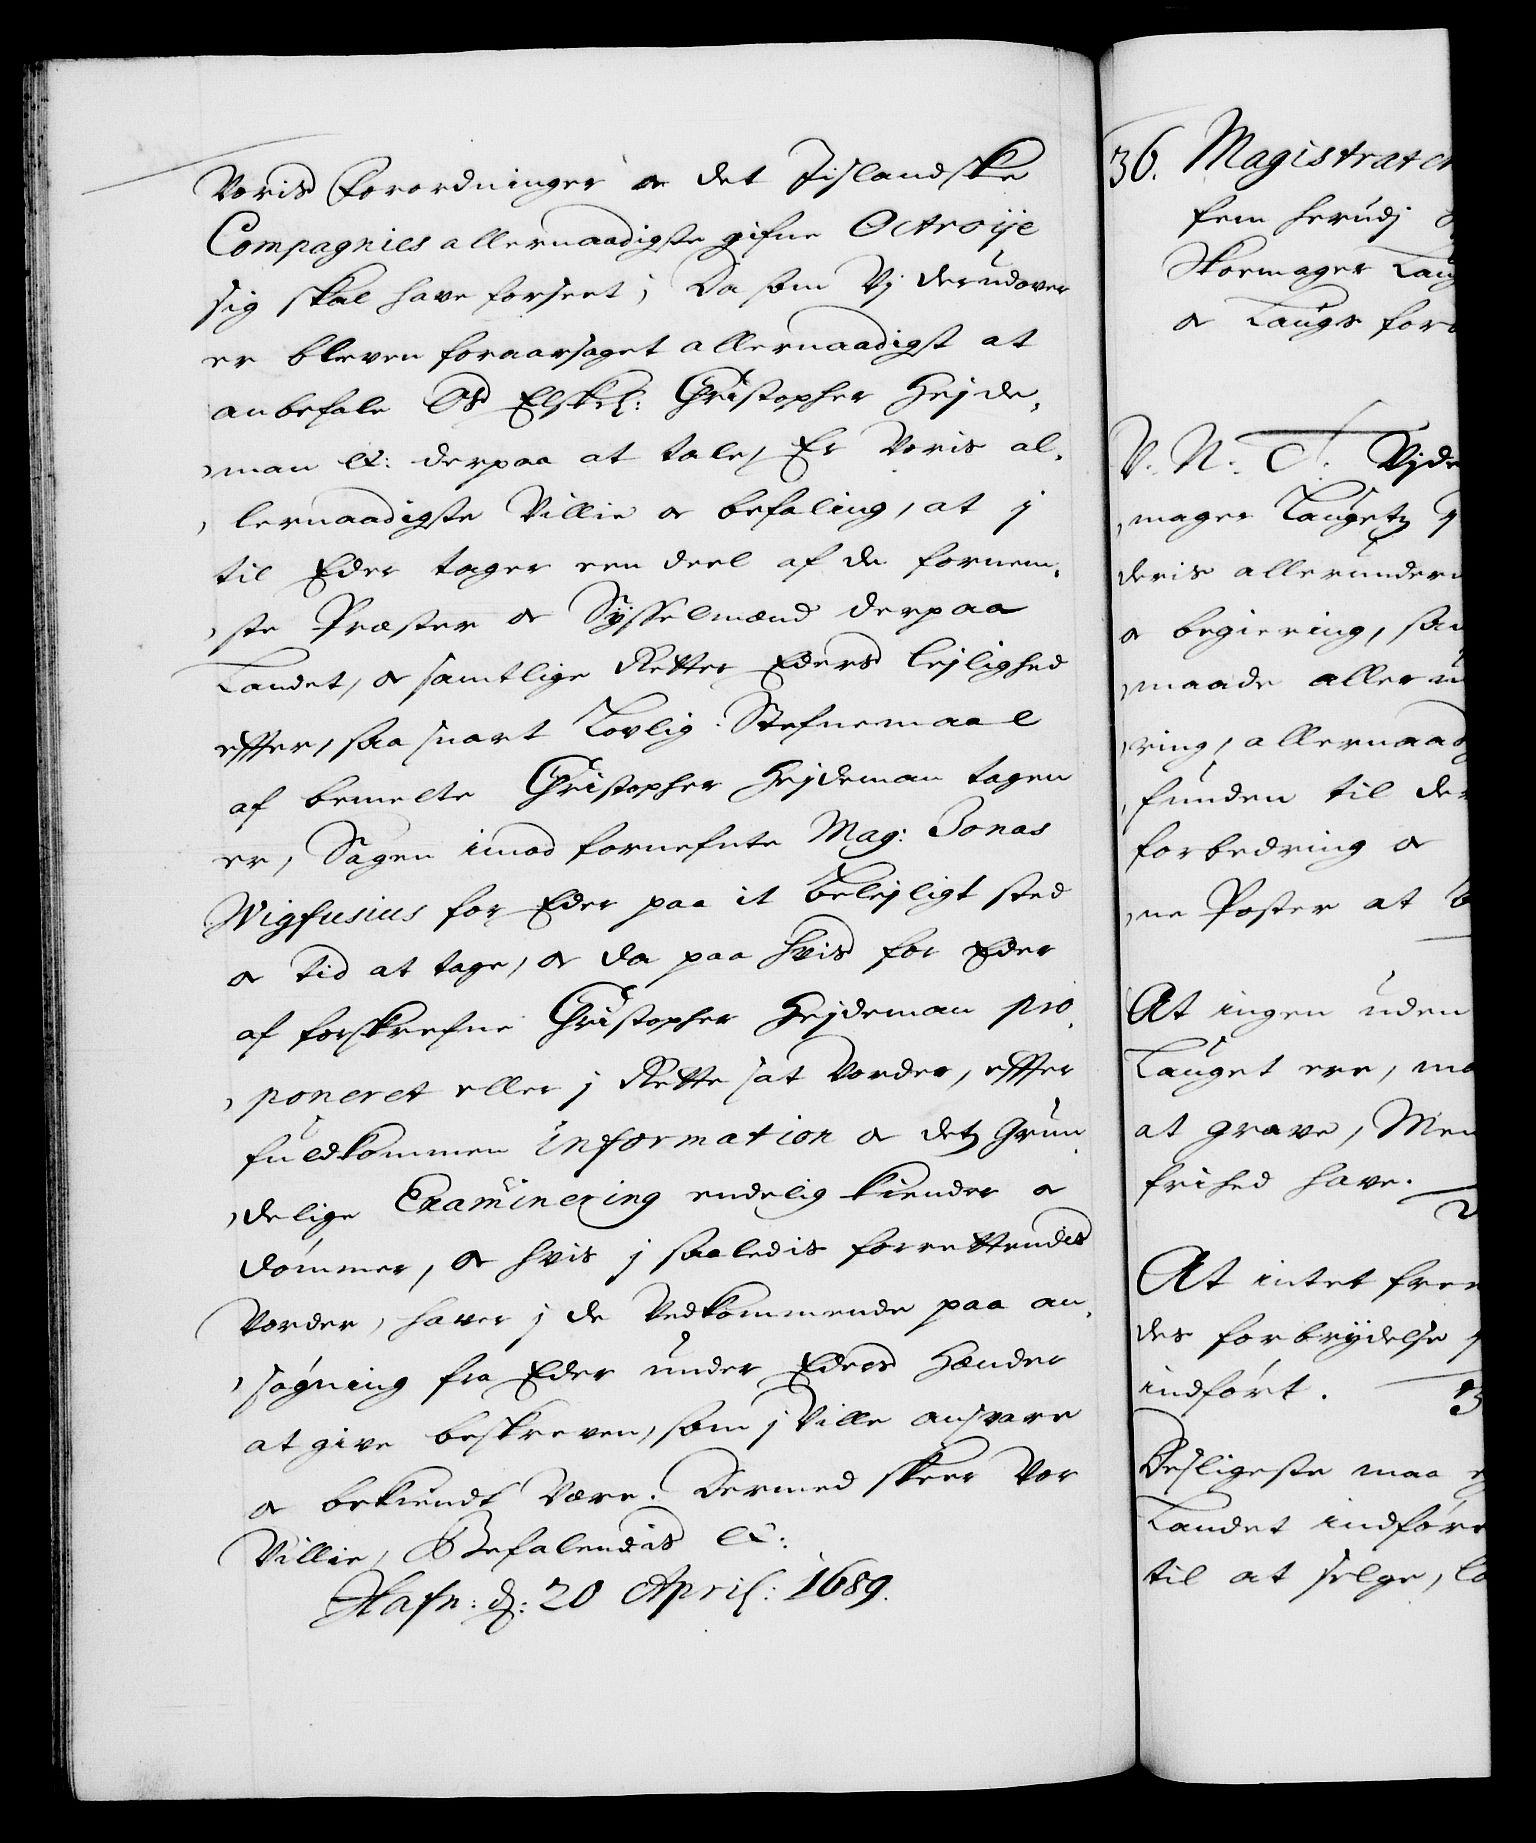 Voris Forordninger og det Jislandske
Compagnies allernaadigste gifne Octroije
sig skal have forseet; Da som Vj derudover
er bleven foraarsaget allernaadigst at
anbefale Os Elskel: Christopher Hejde-
man &: derpaa at tale, Er Voris al-
lernaadigste Villie og befaling, at j
til Eder tager een deel af de fornem-
ste Præster og Sysselmænd derpaa
Landet, og samtlige Retter Eders lejlighed
effter, saa snart Lovlig Stefnemaal
af bemelte Christopher Hejdeman tagen
er, Sagen imod fornefnte Mag: Jonas
Wigfusius for Eder paa it belejligt sted
og tid at tage, og da paa hvis for Eder
af forskrefne Christopher Hejdeman pro-
poneret eller j Rette sat vorder, effter
fuldkommen Information og detz Grun-
delige Examinering endelig kiender og
dømmer, og hvis j saaledis forrettendis
vorder, haver j de Vedkommende paa an-
søgning fra Eder under Eders Hænder
at give beskreven, som j Ville ansvare
og bekiendt Være. Dermed skeer Vor
Villie, Befalendis &:
Hafn: d: 20 April: 1689.
36. Magistraten
fem herudj
Skomager Laug
og Laugs for
V. N. C. T. Vjde
mager Laugetz
deris allerunder
og begiering, saa
maade alleru
ring, allernaad
funden til de
forbedring og
ne Poster at
At ingen uden
Lauget ere, ma
at grave, Men
frihed have.
2
At intet frem
des forbrydelse
indført.
3
Desligeste maa
Landet indføre
til at selge,